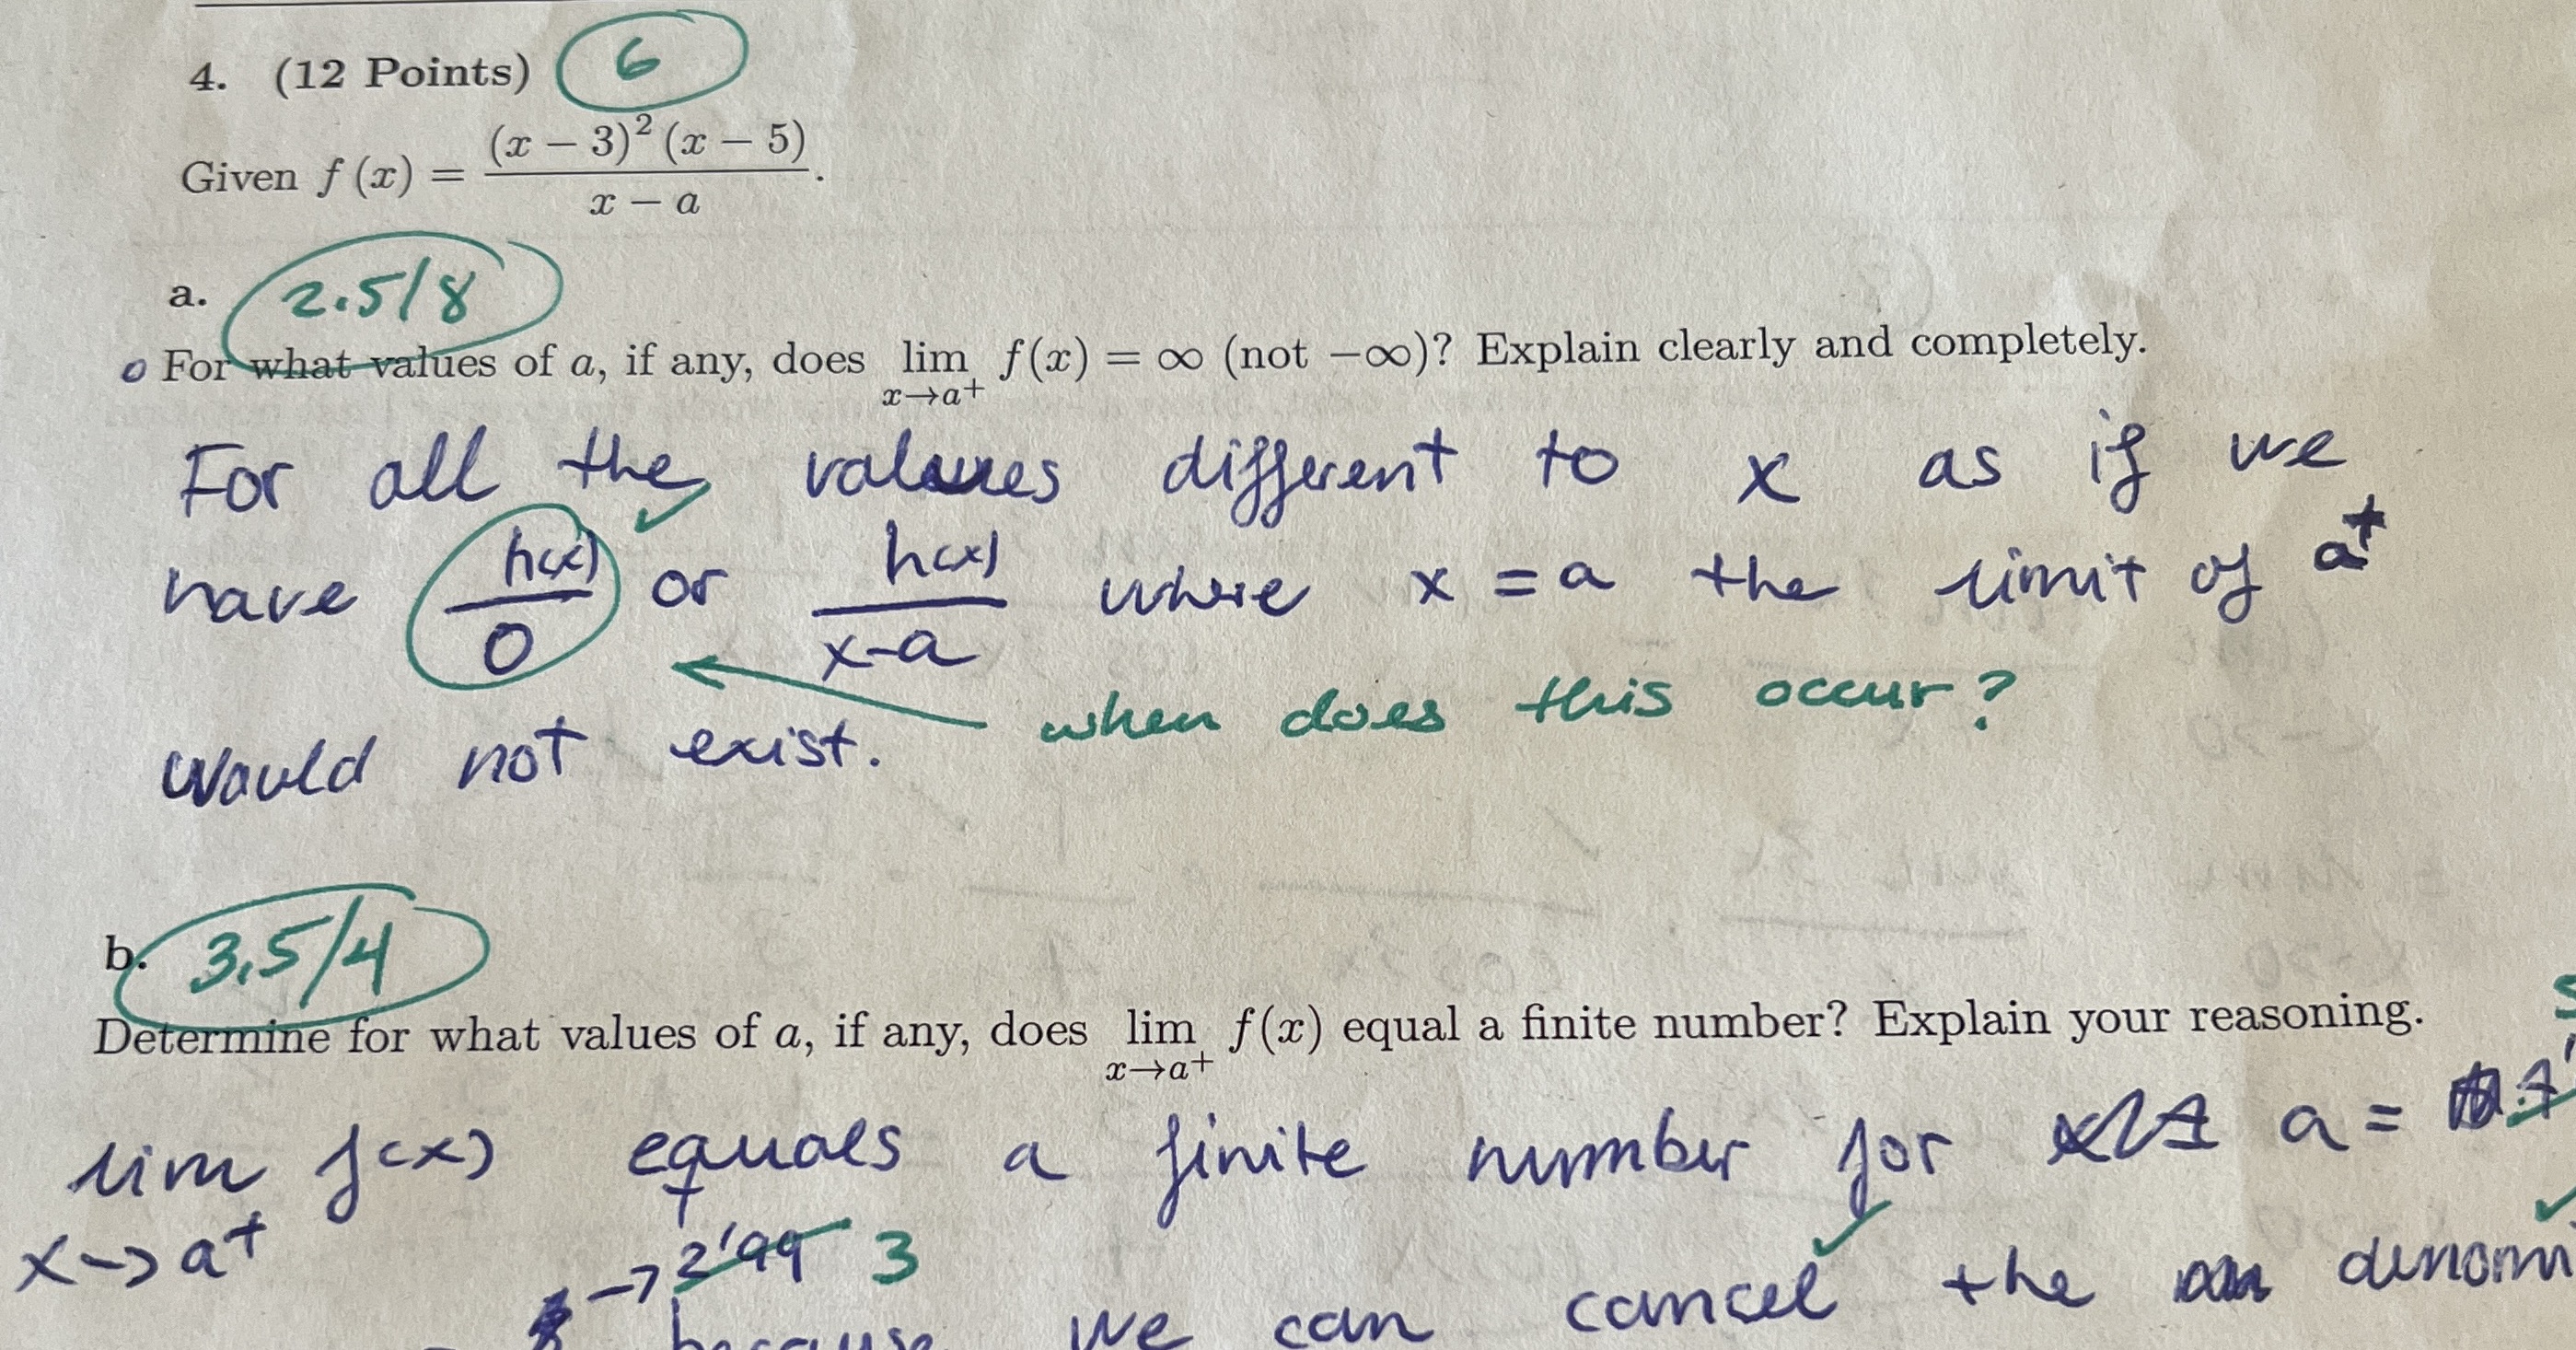 4. (12 Points) 6
Given f (x) = (x − 3)² (x − 5) / x − a .
a. 2.5/8
For what values of a, if any, does lim x→a⁺ f(x) = ∞ (not −∞)? Explain clearly and completely.
For all the values different to x as if we
have h(x)/0 or h(x)/x-a where x = a the limit of a⁺
when does this occur?
would not exist.
b. 3.5/4
Determine for what values of a, if any, does lim x→a⁺ f(x) equal a finite number? Explain your reasoning.
lim x→a⁺ f(x) equals a finite number for a =
→ 2'99 3
because we can cancel the denomi